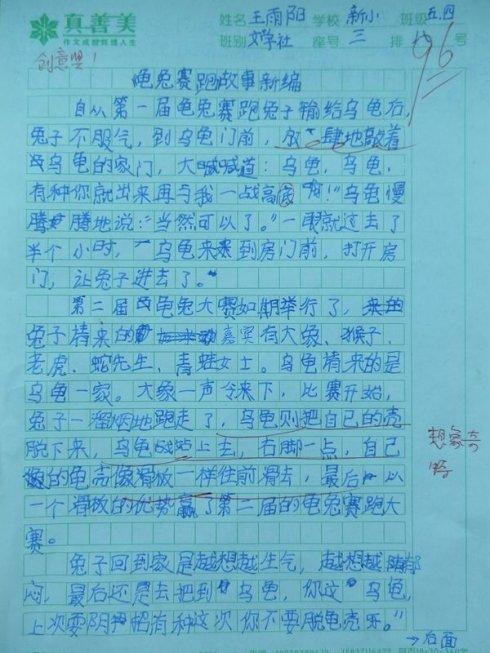 真善美
作文成就辉煌人生
姓名 王雨阳 学校 新小 班级 五.四
班别 文学社 座号 三 排 号
96
创意里!
龟兔赛跑故事新编
自从第一届龟兔赛跑兔子输给乌龟后,
兔子不服气,到乌龟门前,放肆地敲着
乌龟的家门,大喊喊道:乌龟,乌龟,
有种你就出来再与我一战高底啊!"乌龟慢
腾腾地说:"当然可以了。"一眼就过去了
半个小时,乌龟来来到房门前,打开房
门,让兔子进去了。
第二届龟兔大赛如期举行了,
兔子请来的嘉宾有大象、猴子、
老虎、蛇先生、青蛙女士。乌龟请来的是
乌龟一家。大象一声令来下,比赛开始,
兔子一溜烟地跑走了,乌龟则把自己的壳
脱下来,乌龟站上去,右脚一点,自己
的龟壳像滑板一样往前滑去,最后以
一个滑板的优势赢了第二届的龟兔赛跑大
赛。
兔子回到家是越想越生气,越想越郁
闷,最后还是去把到乌龟,你这乌龟,
上次耍阴招有种这次你不要脱龟壳乐。"
想象奇
特
→后面